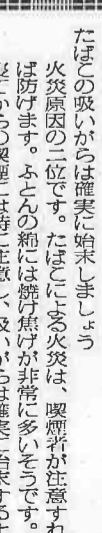 たばこの吸いがらは確実に始末しましょう
火災原因の二位です。たばこによる火災は、喫煙者が注意すれ
ば防げます。ふとんの綿には焼け焦げが非常に多いそうです。